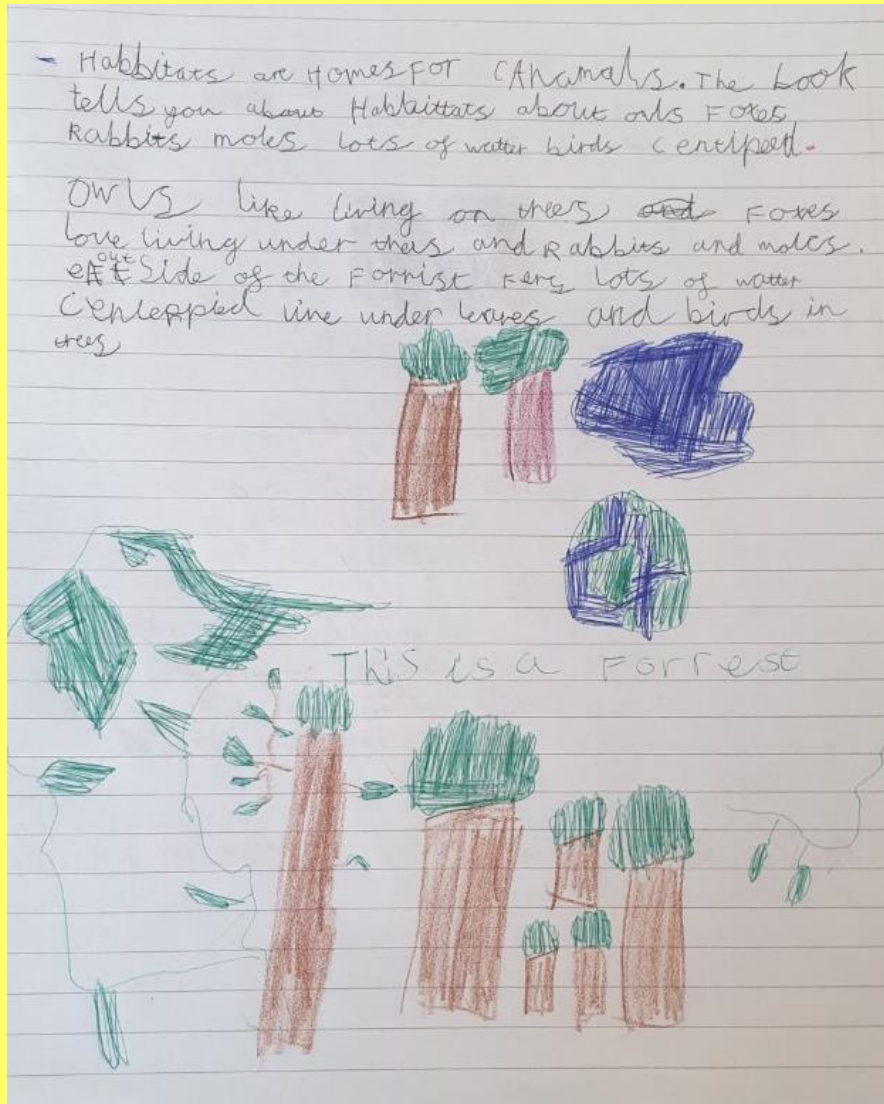 - Habbitats are Homes For Anamals. The book
tells you about Habbittats about owls Foxes
Rabbits moles lots of watter birds Centipeed.
Owls like living on trees and Foxes
love living under theis and Rabbits and moles.
out Side of the Forrist Fers lots of watter
Centeppied live under leaves and birds in
trees
This is a Forrest